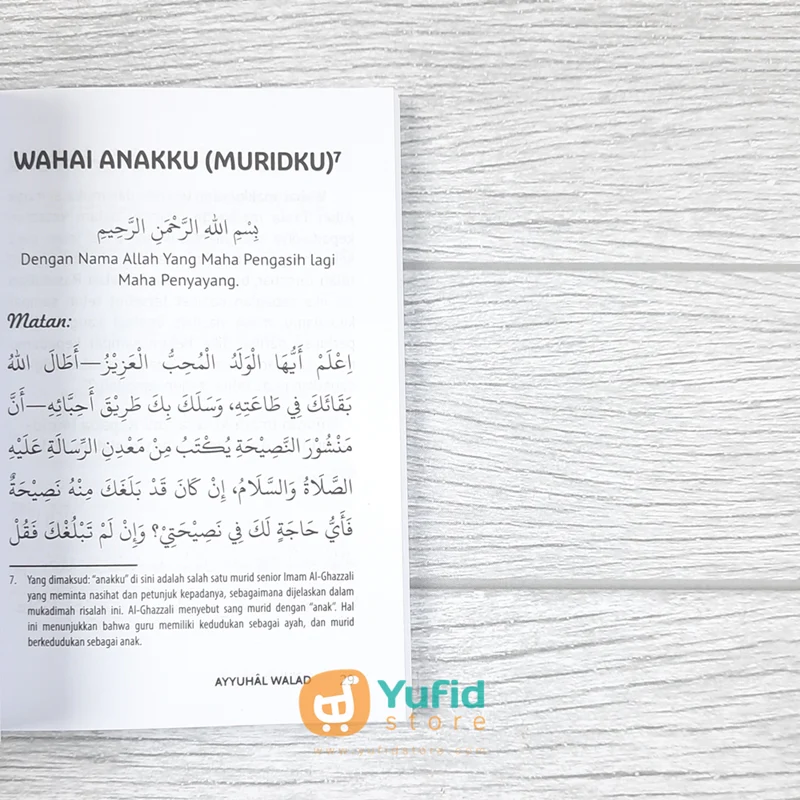 WAHAI ANAKKU (MURIDKU)⁷
بِسْمِ اللهِ الرَّحْمَنِ الرَّحِيمِ
Dengan Nama Allah Yang Maha Pengasih lagi
Maha Penyayang.
Matan:
اِعْلَمْ أَيُّهَا الْوَلَدُ الْمُحِبُّ الْعَزِيْزُ—أَطَالَ اللهُ
بَقَائَكَ فِي طَاعَتِهِ، وَسَلَكَ بِكَ طَرِيْقَ أَحِبَّائِهِ—أَنَّ
مَنْشُوْرَ النَّصِيْحَةِ يُكْتَبُ مِنْ مَعْدِنِ الرِّسَالَةِ عَلَيْهِ
الصَّلَاةُ وَالسَّلَامُ، إِنْ كَانَ قَدْ بَلَغَكَ مِنْهُ نَصِيْحَةٌ
فَأَيُّ حَاجَةٍ لَكَ فِي نَصِيْحَتِيْ؟ وَإِنْ لَمْ تَبْلُغْكَ فَقُلْ
7. Yang dimaksud: “anakku” di sini adalah salah satu murid senior Imam Al-Ghazzali
yang meminta nasihat dan petunjuk kepadanya, sebagaimana dijelaskan dalam
mukadimah risalah ini. Al-Ghazzali menyebut sang murid dengan “anak”. Hal
ini menunjukkan bahwa guru memiliki kedudukan sebagai ayah, dan murid
berkedudukan sebagai anak.
AYYUHÂL WALAD
Yufid
store